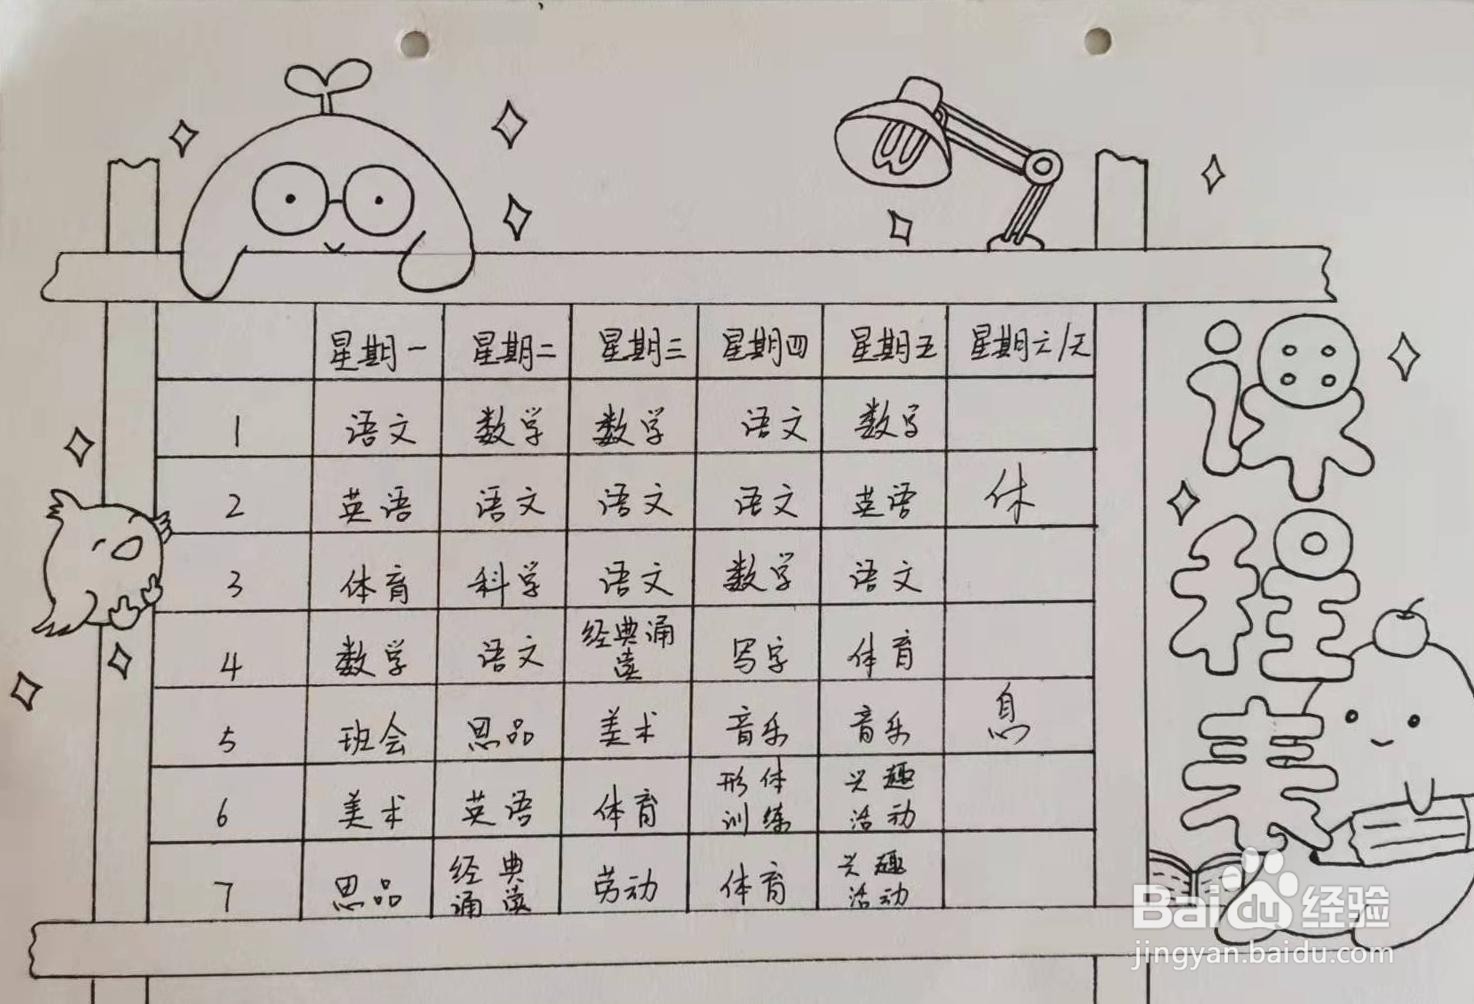 星期一 星期二 星期三 星期四 星期五 星期六/天
1 语文 数学 数学 语文 数学
2 英语 语文 语文 语文 英语 休
3 体育 科学 语文 数学 语文
4 数学 语文 经典诵读 写字 体育
5 班会 思品 美术 音乐 音乐 息
6 美术 英语 体育 形体训练 兴趣活动
7 思品 经典诵读 劳动 体育 兴趣活动
课程表
Baidu经验
jingyan.baidu.com